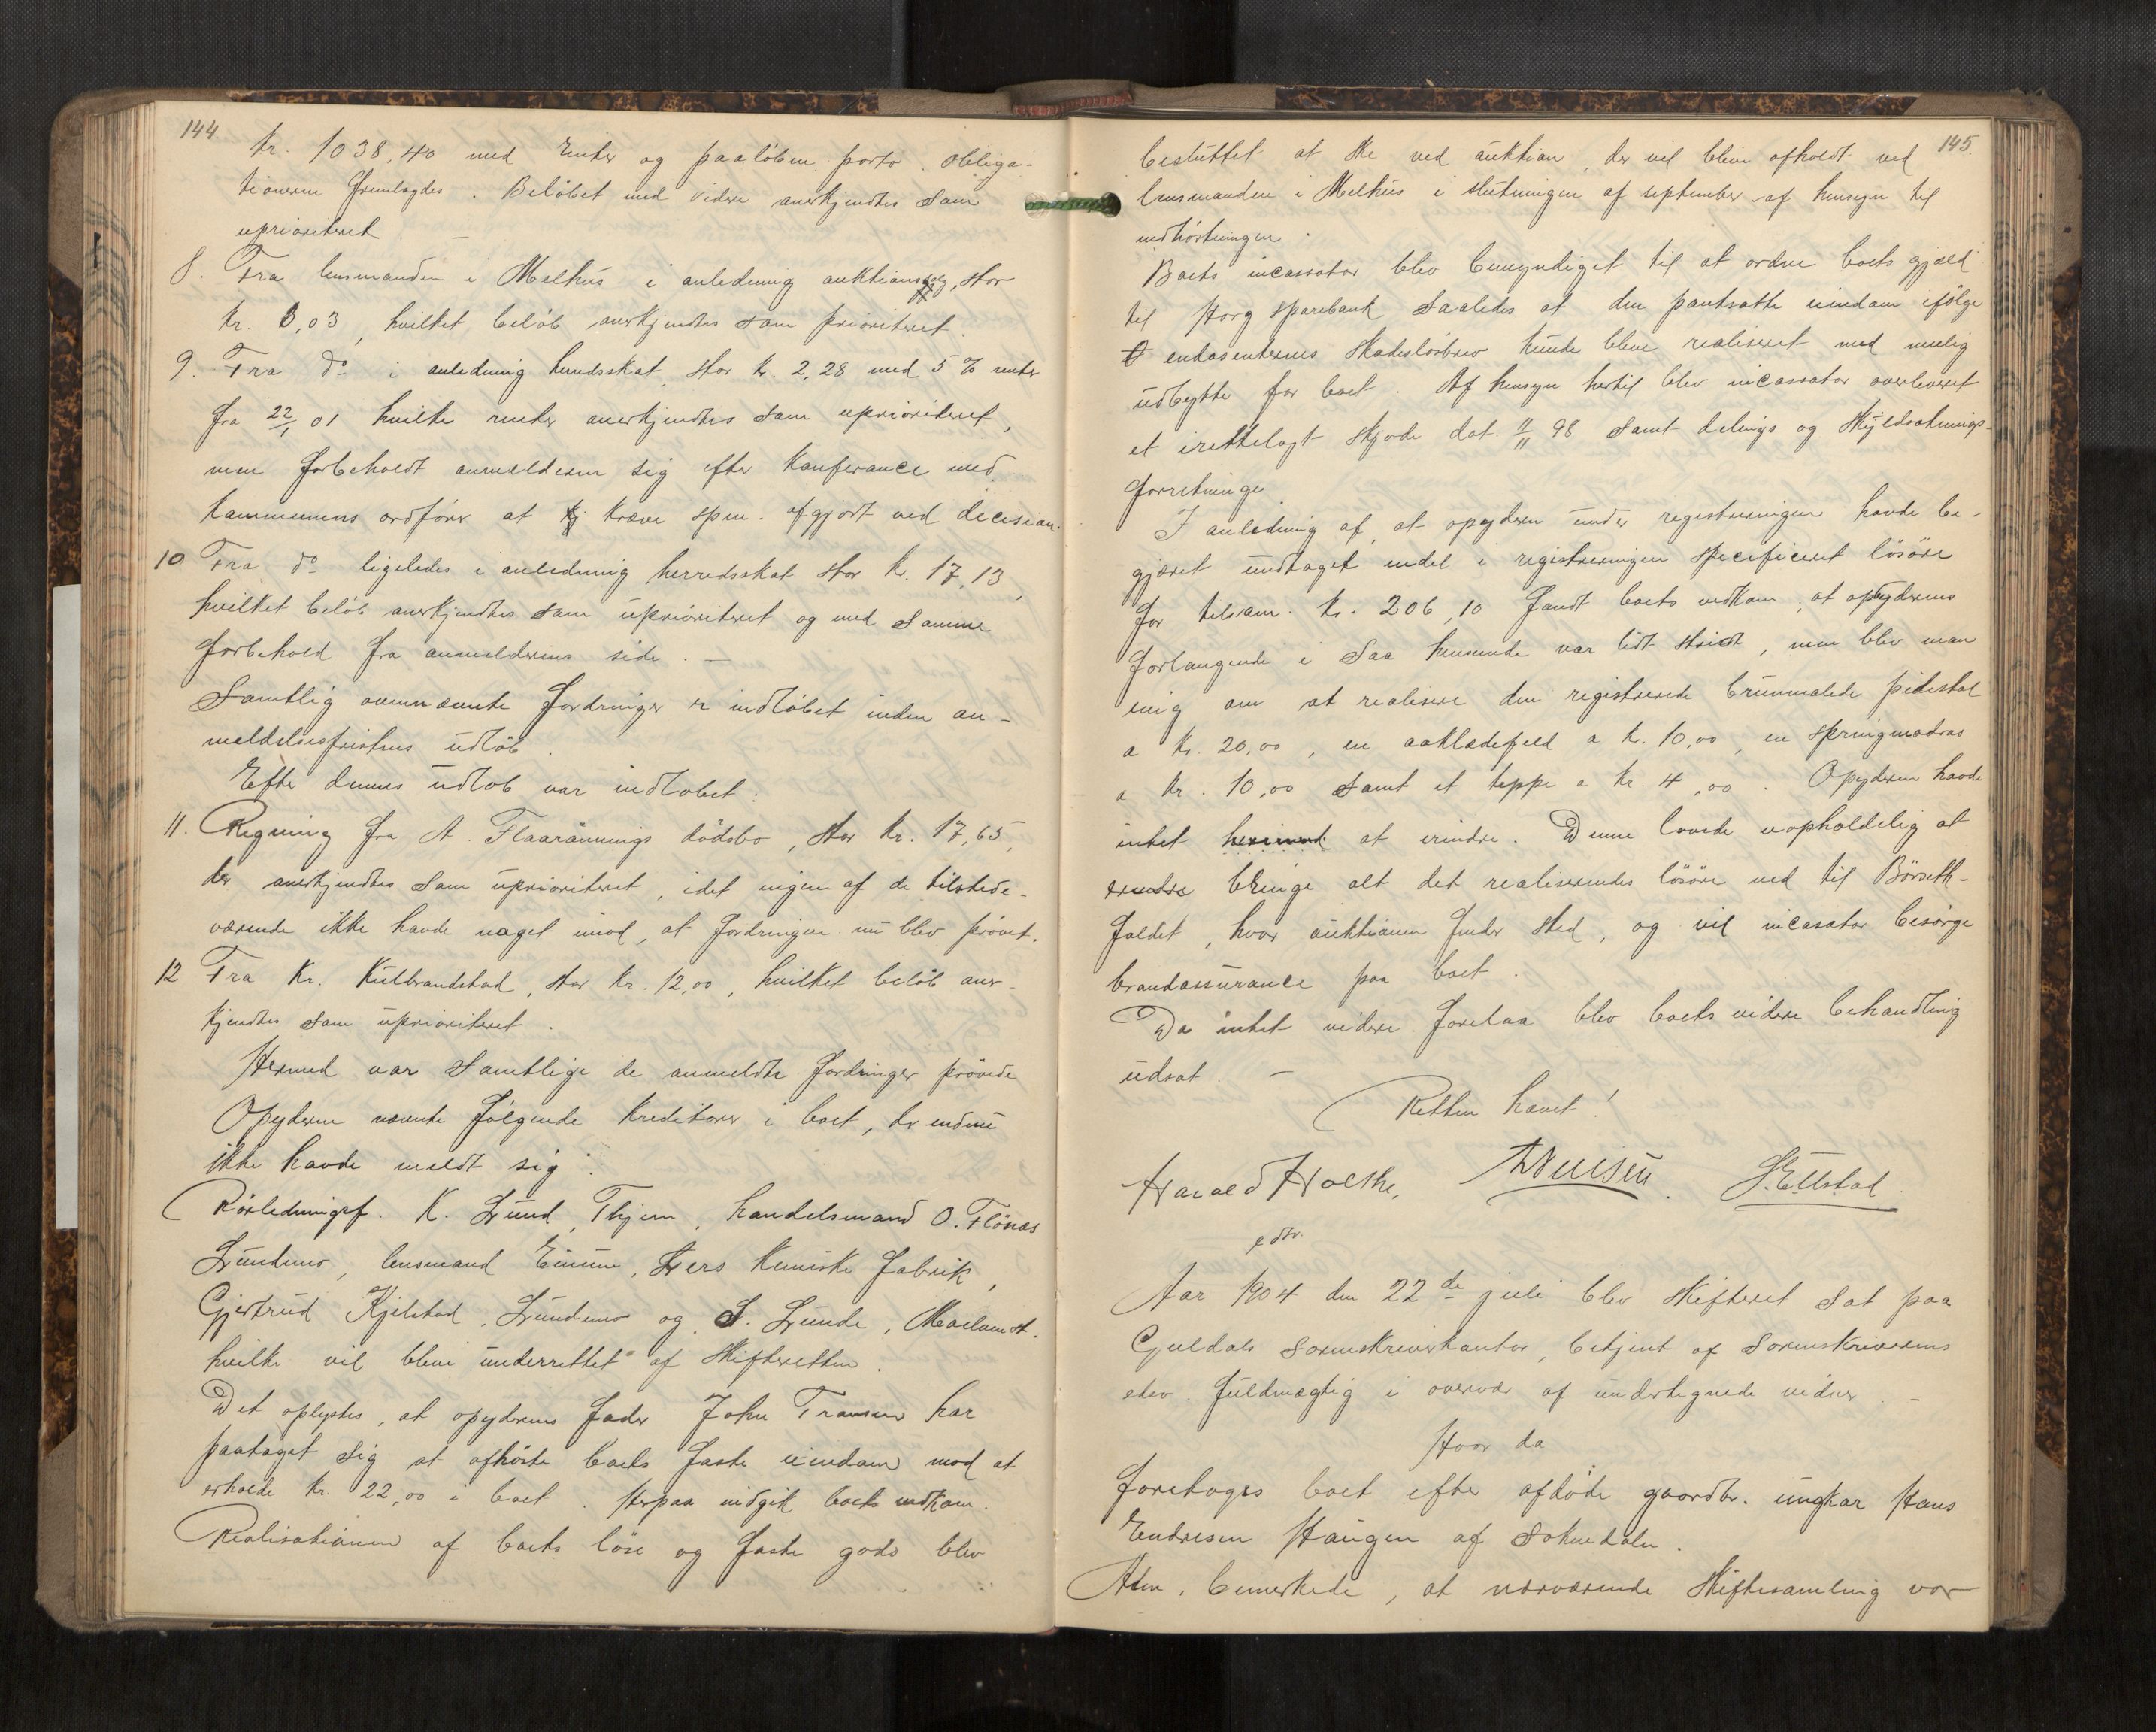 144.
kr. 1038,40 med renter og paaløben porto. Obliga-
tionerne fremlagdes. Beløbet med videre anerkjendtes som
uprioriteret. —
8. Fra lensmanden i Melhus i anledning auktions, stor
kr. 3,03, hvilket beløb anerkjendtes som prioriteret.
9. Fra do i anledning hundsskat, stor kr. 2,28 med 5 % renter
fra 22/1 01 hvilke renter anerkjendtes som uprioriteret,
men forbeholdt anmelderen sig efter konferance med
kommunens ordfører at kræve spm. afgjort ved decision.
10 Fra do ligeledes i anledning herredsskat stor kr. 17,13,
hvilket beløb anerkjendtes som uprioriteret og med samme
forbehold fra anmelderens side. —
Samtlig ovennævnte fordringer er indløbet inden an-
meldelsesfristens udløb.
Efter dennes udløb var indløbet:
11. Regning fra A. Flaarønnings dødsbo, stor kr. 17,65,
der anerkjendtes som uprioriteret, idet ingen af de tilstede-
værende ikke havde noget imod, at fordringen nu blev prøvet.
12 Fra Kr. Kulbrandstad, stor kr. 12,00, hvilket beløb aner-
kjendtes som uprioriteret.
Hermed var samtlige de anmeldte fordringer prøvede
Opyderen nævnte følgende kreditorer i boet, der endnu
ikke havde meldt sig:
Rørledningsf. K. Lund, Thjem, handelsmand O. Flønæs
Lundemo, lensmand Eimme, Lers kemiske fabrik,
Gjertrud Kjelstad, Lundemo og S. Lunde, Moelven st.
hvilke vil bleve underrettet af skifteretten.
Det oplystes, at opyderens fader John Fransen har
paataget sig at afhøste boets faste eiendom mod at
erholde kr. 22,00 i boet. Herpaa indgik boets vedkom.
Realisationen af boets løse og faste gods blev
145.
besluttet at ske ved auktion, der vil blive afholdt ved
lensmanden i Melhus i slutningen af september af hensyn til
indhøstningen.
Boets incassator blev bemyndiget til at ordne boets gjæld
til Horg sparebank saaledes at den pantsatte eiendom ifølge
endosenternes skadesløsbrev kunde bleve realiseret med mulig
udbytte for boet. Af hensyn hertil blev incassator overleveret
et irettelagt skjøde dat. 11/11 98 samt delings og skyldsætnings-
forretninge.
I anledning af, at opyderen under registreringen havde be-
gjæret undtaget endel i registreringen specificeret løsøre
for tilsam. kr. 206,10 fandt boets vedkom., at opbyderens
forlangende i saa henseende var lidt stridt, men blev man
enig om at realisere den registrerede brunmalede pidestal
a kr. 20,00, en aaklædefjeld a kr. 10,00, en springmadras
a kr. 10,00 samt et teppe a kr. 4,00. Opyderen havde
intet herimod at erindre. Denne lovede uopholdelig at
bringe alt det realiserendes løsøre ned til Børseth-
foldet, hvor auktionen finder sted, og vil incasator besørge
brandassurance paa boet.
Da intet videre forelaa blev boets videre behandling
udsat. —
Retten hævet!
Harald Holthe,
edsv.
S. Ettstad
Aar 1904 den 22de juli blev skifteret sat paa
Guldals sorenskriverkontor, betjent af sorenskriverens
edsv. fuldmægtig i overvær af undertegnede vidner. —
Hvor da
foretoges boet efter afdøde gaardbr. ungkar Hans
Endresen Haugen af Soknedalen.
Adm. bemerkede, at nærværende skiftesamling var